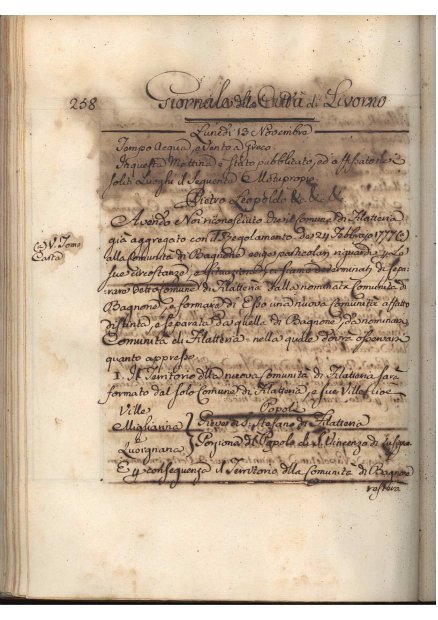 258 Giornale della Città di Livorno
Lunedì 13 Novembre
Tempo Acqua, e Vento a
In questa Mattina è stato pubblicato, ed affisso nei
soliti Luoghi il seguente Motuproprio
Pietro Leopoldo & & &
Avendo Noi riconosciuto che il Comune di Filattiera
già aggregato con Regolamento de 24 Febbraio 1777 (a)
(a) V. Tomo
Carta
alla Comunità di Bagnone esige particolari riguardi per Le
sue circostanze, e situazione, ci siamo determinati di sepa-
rare detto Comune di Filattiera dalla nominata Comunità di
Bagnone, e formare di Esso una nuova Comunità affatto
distinta, e separata da quella di Bagnone, da nominarsi
Comunità di Filattiera, nella quale dovrà osservarsi
quanto appresso
1. Il Territorio della nuova Comunità di Filattiera sarà
formato dal solo Comune di Filattiera, e sue Ville, cioè
Ville Popoli
Migliarina Pieve di S. Stefano di Filattiera
e Porzione del Popolo di S. Vincenzo di
Quorgnana
E per conseguenza il Territorio della Comunità di Bagnone
resterà